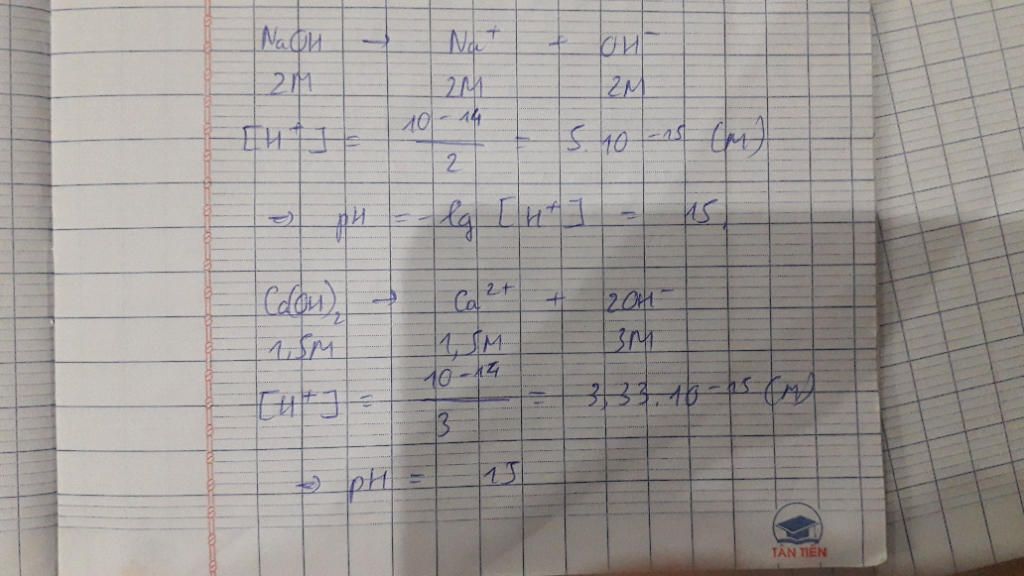 NaOH → Na⁺ + OH⁻
2M 2M 2M
[H⁺] = 10⁻¹⁴ / 2 = 5.10⁻¹⁵ (M)
⇒ pH = -lg [H⁺] = 15
Ca(OH)₂ → Ca²⁺ + 2OH⁻
1,5M 1,5M 3M
[H⁺] = 10⁻¹⁴ / 3 = 3,33.10⁻¹⁵ (M)
⇒ pH = 15
TÂN TIẾN